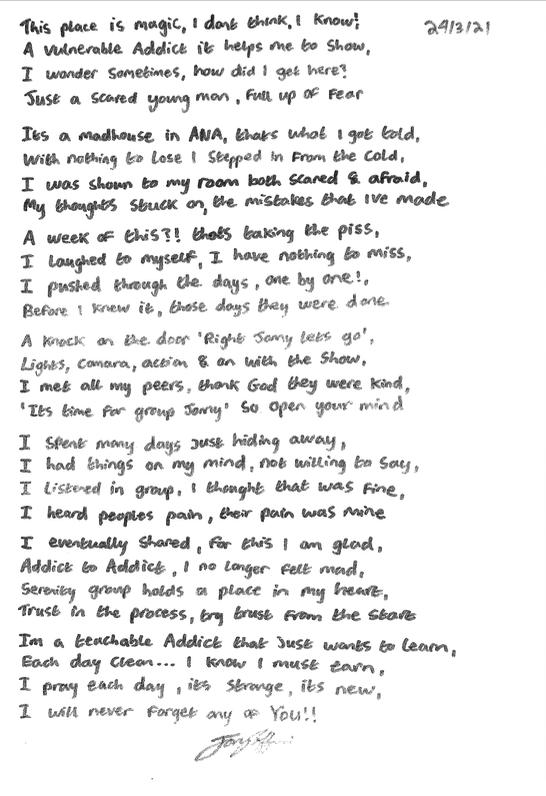 24/3/21
This place is magic, I dont think, I Know!
A vulnerable Addict it helps me to Show,
I wonder Sometimes, how did I get here?
Just a Scared young man, Full up of Fear
Its a madhouse in ANA, thats what I got told,
With nothing to Lose I Stepped in From the Cold,
I was shown to my room both scared & afraid,
My thoughts Stuck on, the mistakes that Ive made
A week of this?! thats taking the piss,
I laughed to myself, I have nothing to miss,
I pushed through the days, one by one!,
Before I Knew it, those days they were done.
A Knock on the door 'Right Jamy lets go',
Lights, Camara, action & on with the Show,
I met all my peers, thank God they were Kind,
'Its time For group Jamy' So open your mind
I Spent many days Just hiding away,
I had things on my mind, not willing to Say,
I Listened in group, I thought that was Fine,
I heard peoples pain, their pain was Mine
I eventually Shared, For this I am glad,
Addict to Addict, I no longer Felt mad,
Serenity group holds a place in my heart,
Trust in the process, try trust From the Start
Im a teachable Addict that Just wants to Learn,
Each day Clean... I Know I must earn,
I pray each day, its Strange, its new,
I will never Forget any of You!!